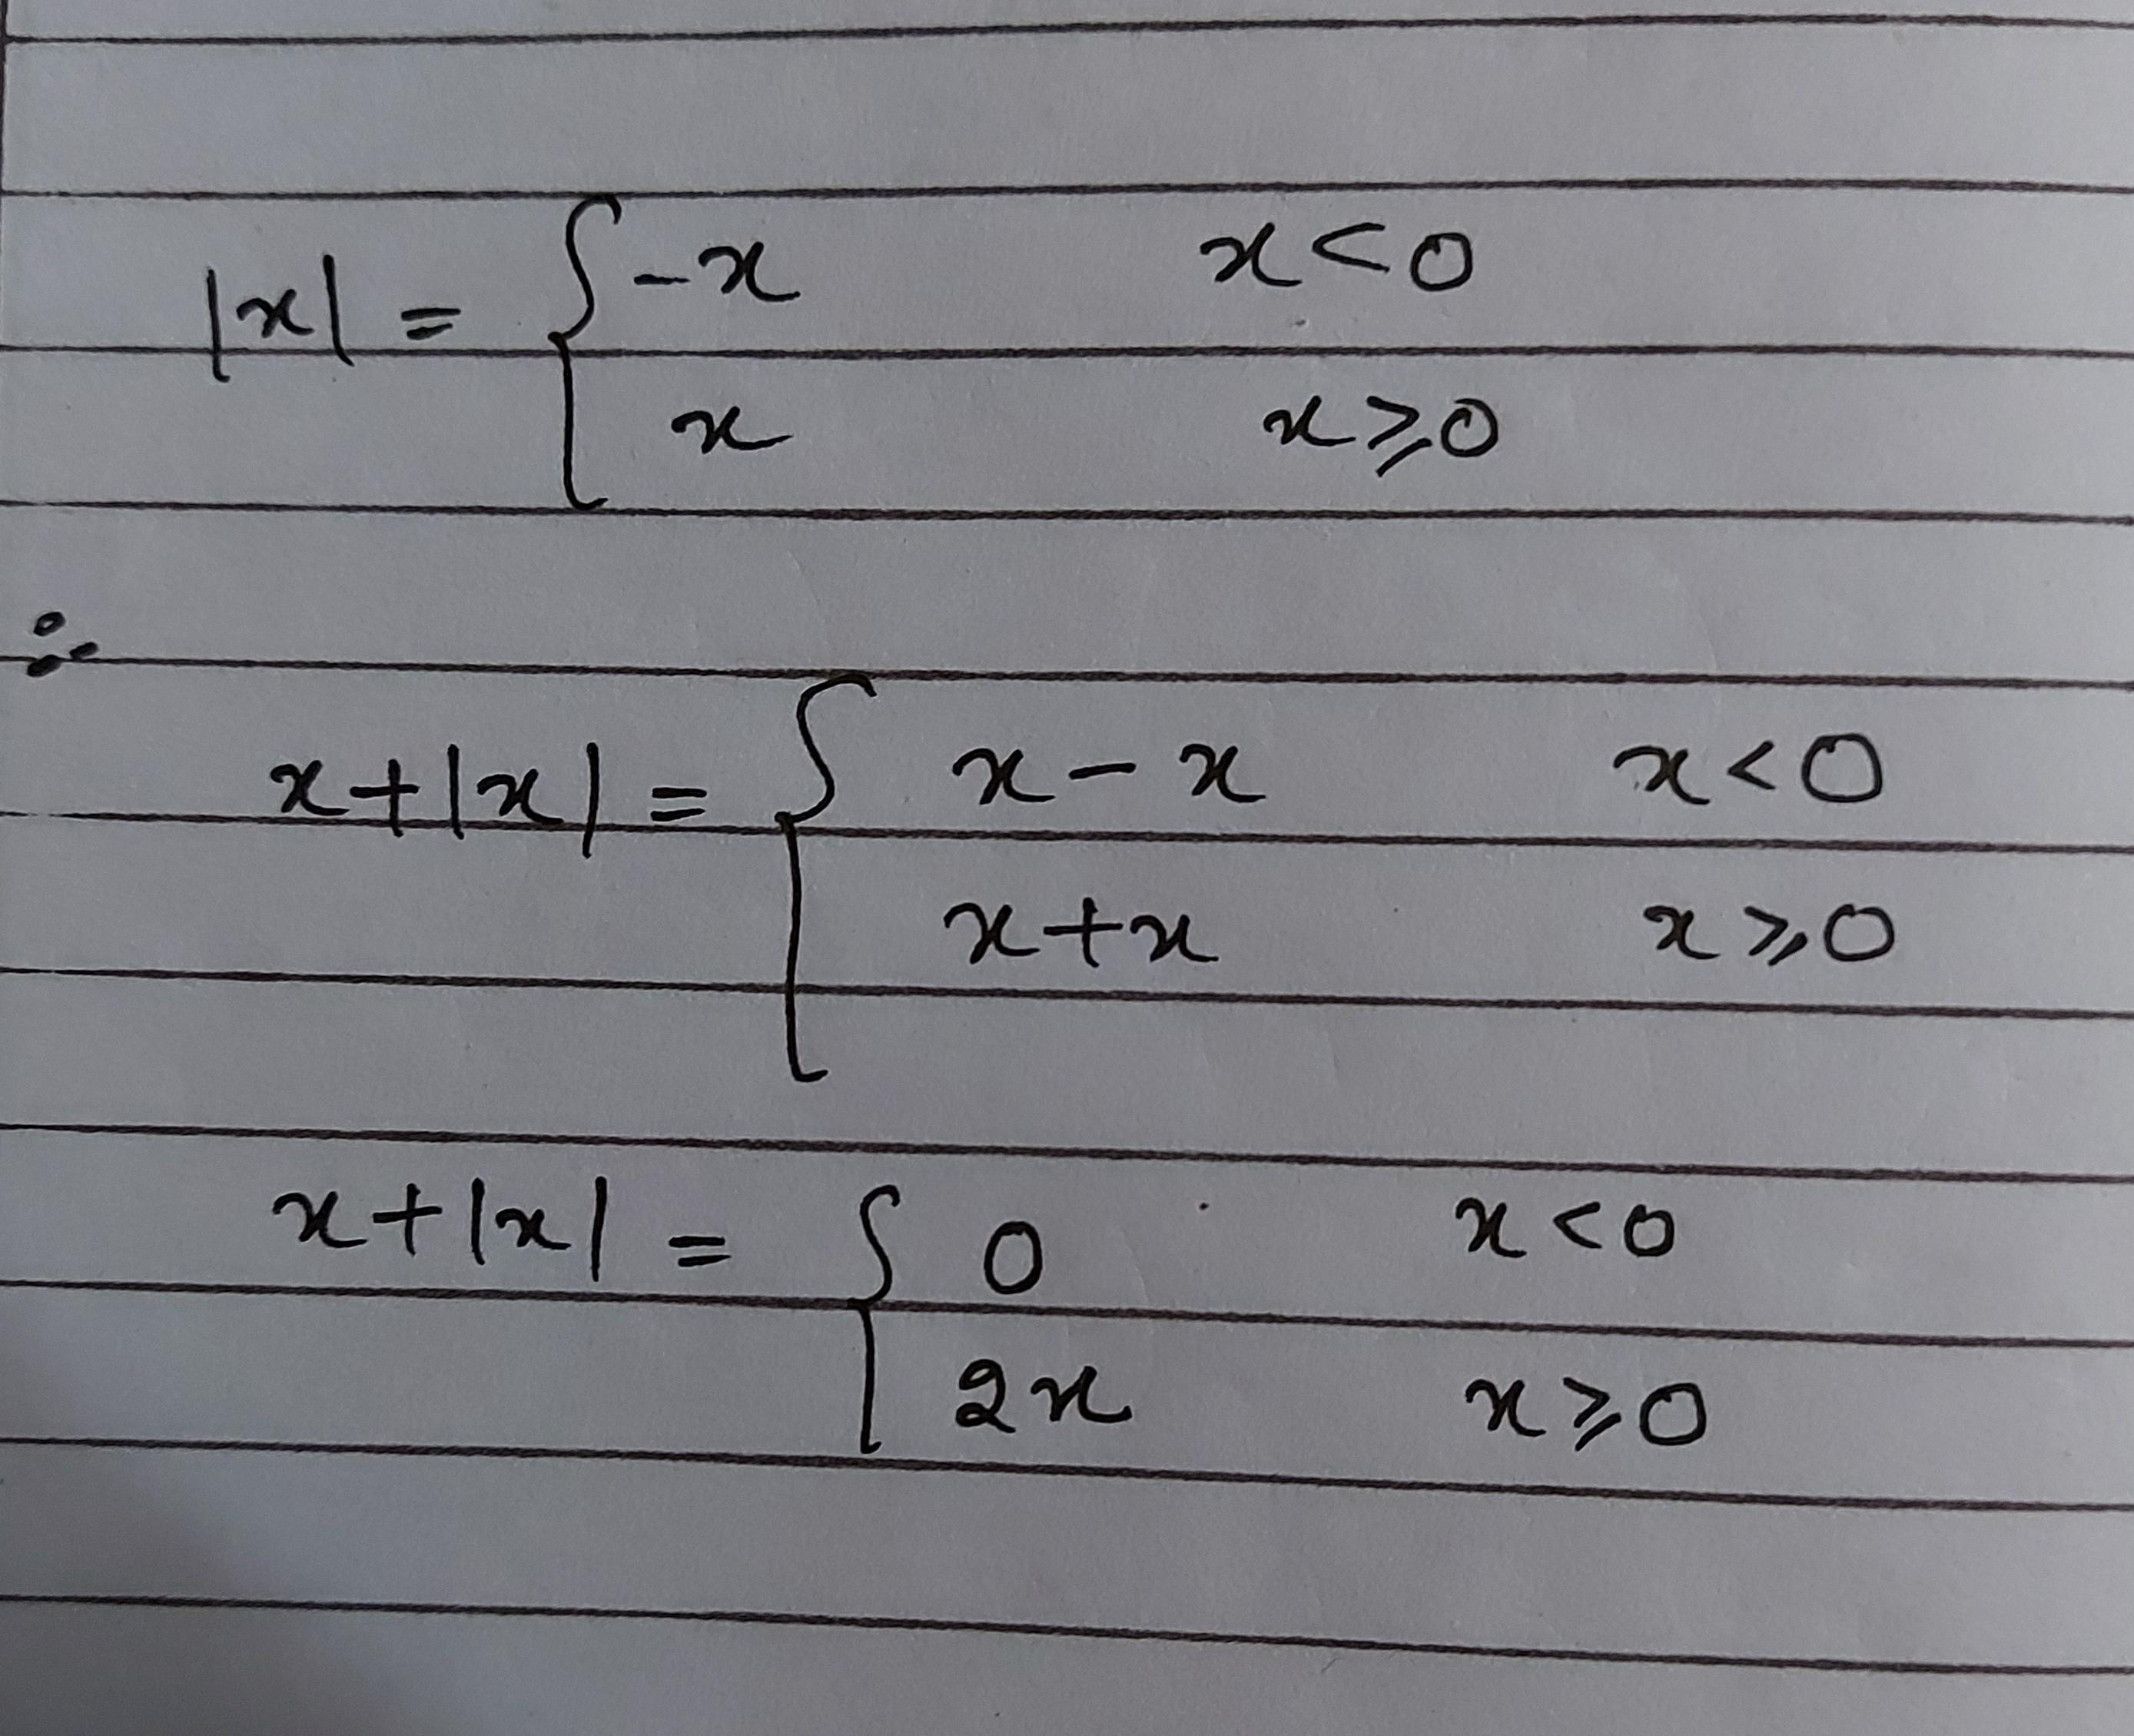 |x| = { -x x<0
x x⩾0
∴
x+|x| = { x-x x<0
x+x x⩾0
x+|x| = { 0 x<0
2x x⩾0